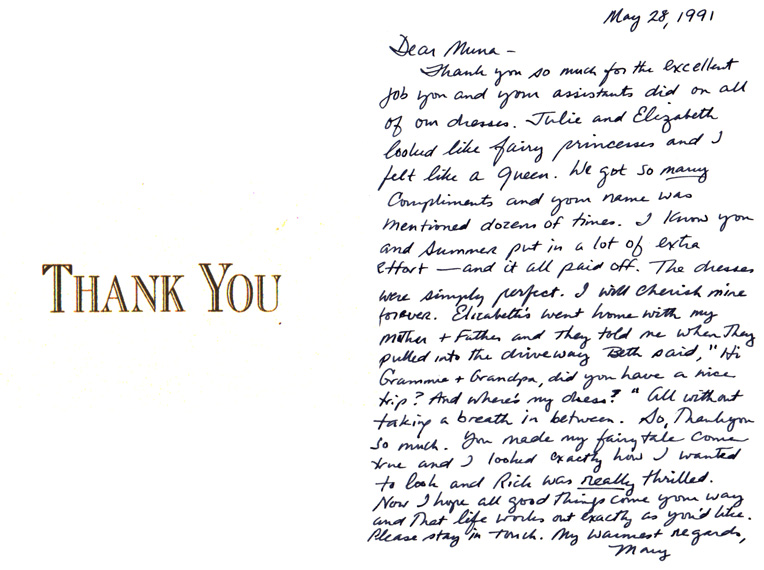 THANK YOU
May 28, 1991
Dear Muna -
Thank you so much for the excellent
job you and your assistants did on all
of our dresses. Julie and Elizabeth
looked like fairy princesses and I
felt like a queen. We got so many
Compliments and your name was
mentioned dozens of times. I know you
and Summer put in a lot of extra
effort — and it all paid off. The dresses
were simply perfect. I will cherish mine
forever. Elizabeth's went home with my
mother + Father and they told me when they
pulled into the driveway Beth said, "Hi
Grammie + Grandpa, did you have a nice
trip? And where's my dress?" All without
taking a breath in between. So, Thank you
so much. You made my fairy tale come
true and I looked exactly how I wanted
to look and Rick was really thrilled.
Now I hope all good things come your way
and that life works out exactly as you'd like.
Please stay in touch. My warmest regards,
Mary